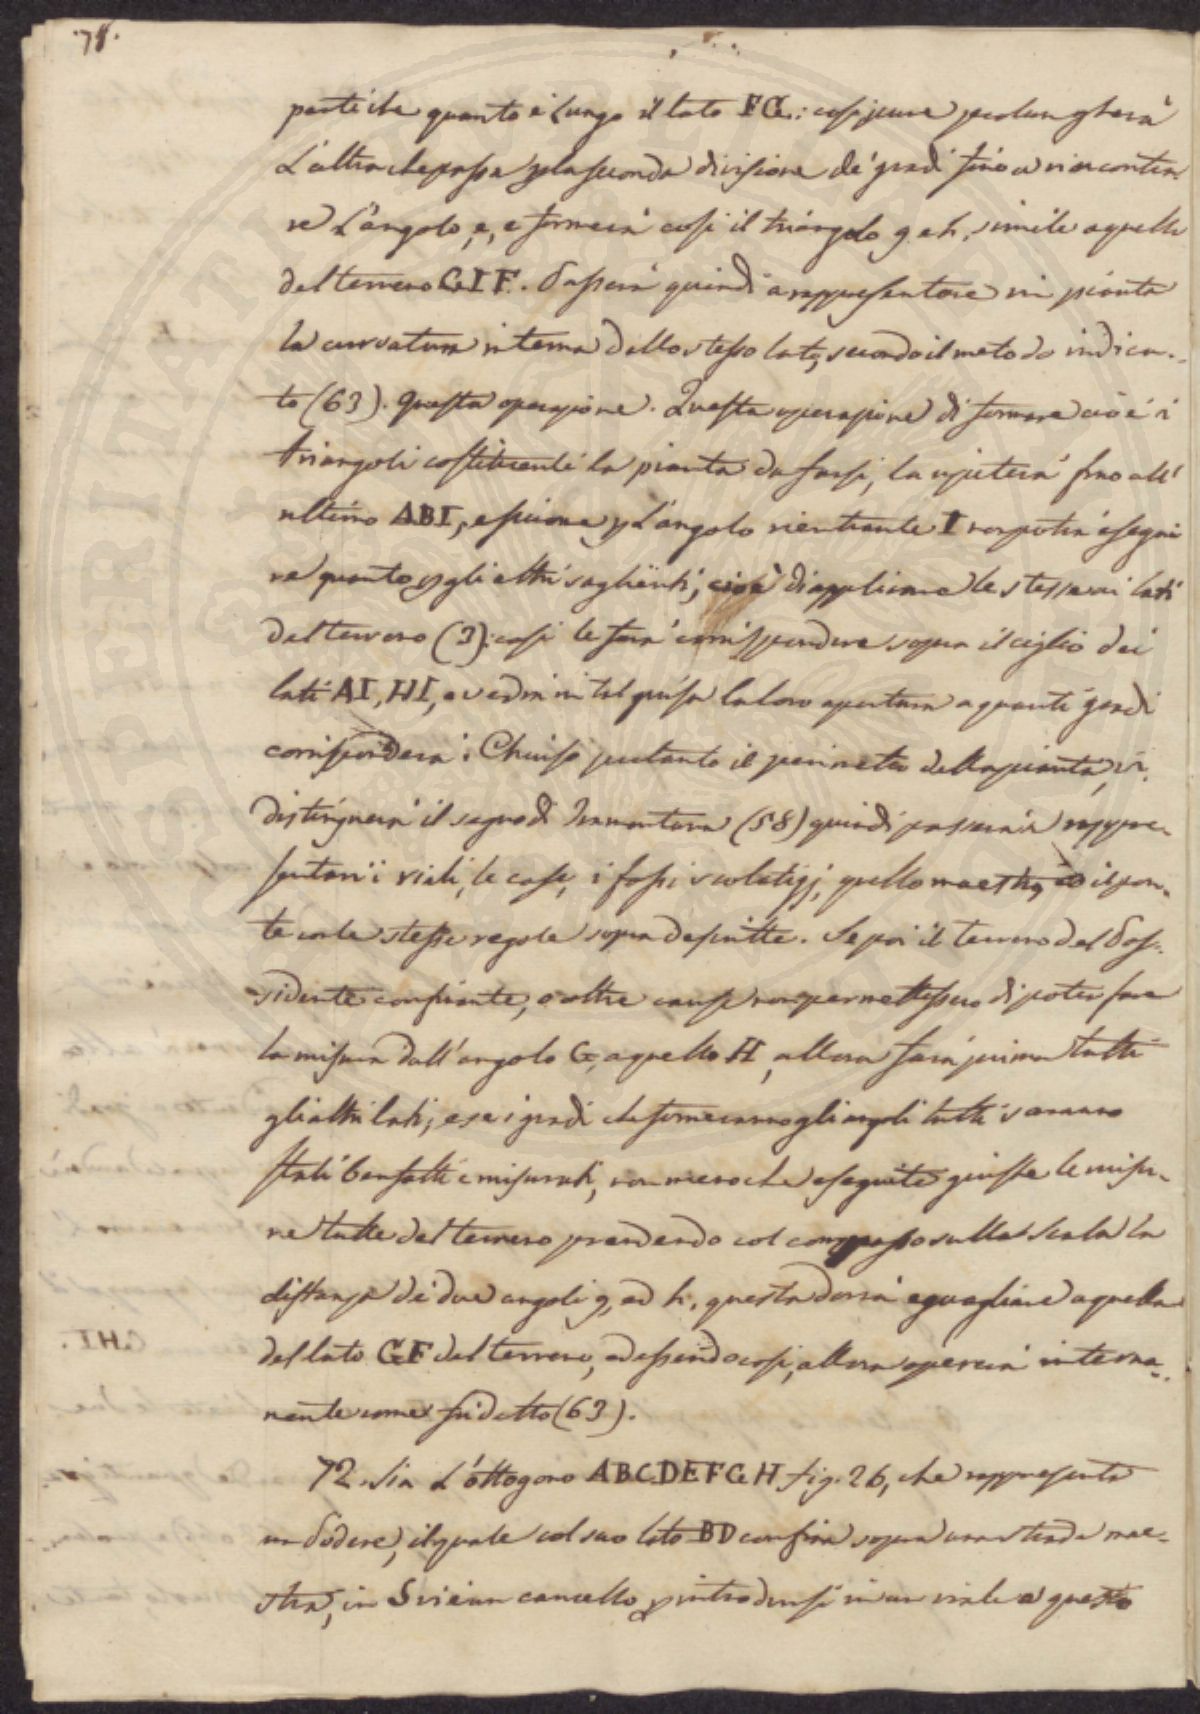 78.
particelle quanto è lungo il lato FG.: così pure prolungherà
L'altra che passa p la seconda divisione de' gradi fino a rincontra-
re L'angolo, e, e formerà così il triangolo g.e.h. simile a quello
del terreno GIF. Passerà quindi a rappresentare in pianta
la curvatura interna dello stesso lato, secondo il metodo indica-
to (63). Questa operazione. Questa operazione di formare cioè i
triangoli costituenti la pianta da farsi, la ripeterà fino all'
ultimo ABI, e siccome p L'angolo rientrante I non potrà esegui
re quanto p gli altri saglienti, cioè di applicare le stesse ai lati
del terreno (3): così le farà corrispondere sopra il ciglio dei
lati AI, HI, e vedrà in tal guisa la loro apertura a quanti gradi
corrisponderà: Chiuso pertanto il perimetro della pianta, vi
distinguerà il segno di Tramontana (58) quindi passerà a rappre-
sentarvi i viali, le case, i fossi scolatizj, quello maestro, ed il pon-
te con le stesse regole sopra descritte. Se poi il terreno del Pos-
sidente confinante, o altre cause non permettessero di poter fare
la misura dall'angolo G, a quello H, allora farà prima tutti
gli altri lati, e se i gradi che formeranno gli angoli tutti saranno
stati ben fatti e misurati, non meno che eseguite giuste le misu-
re tutte del terreno prendendo col compasso sulla scala la
distanza dei due angoli g, ed h, questa dovrà eguagliare a quella
del lato GF del terreno, ed essendo così, allora opererà interna-
mente come fu detto (63).
72. Sia L'ottogono ABCDEFGH fig. 26, che rappresenta
un Podere, il quale col suo lato BD confina sopra una strada mae-
stra, in S vi è un cancello p introdursi in un viale a questo
GHI.